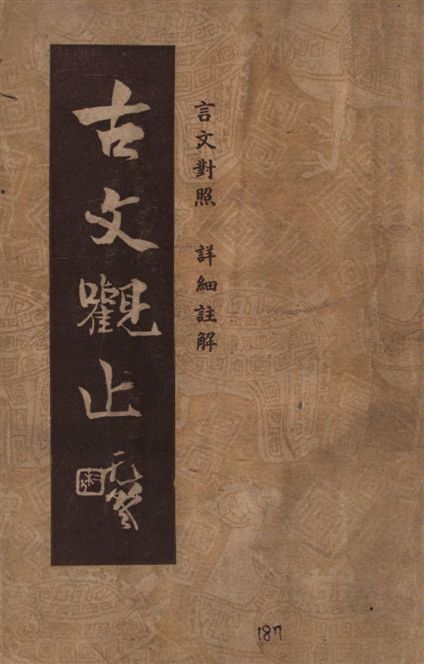 言文對照　詳細註解
古文觀止
187